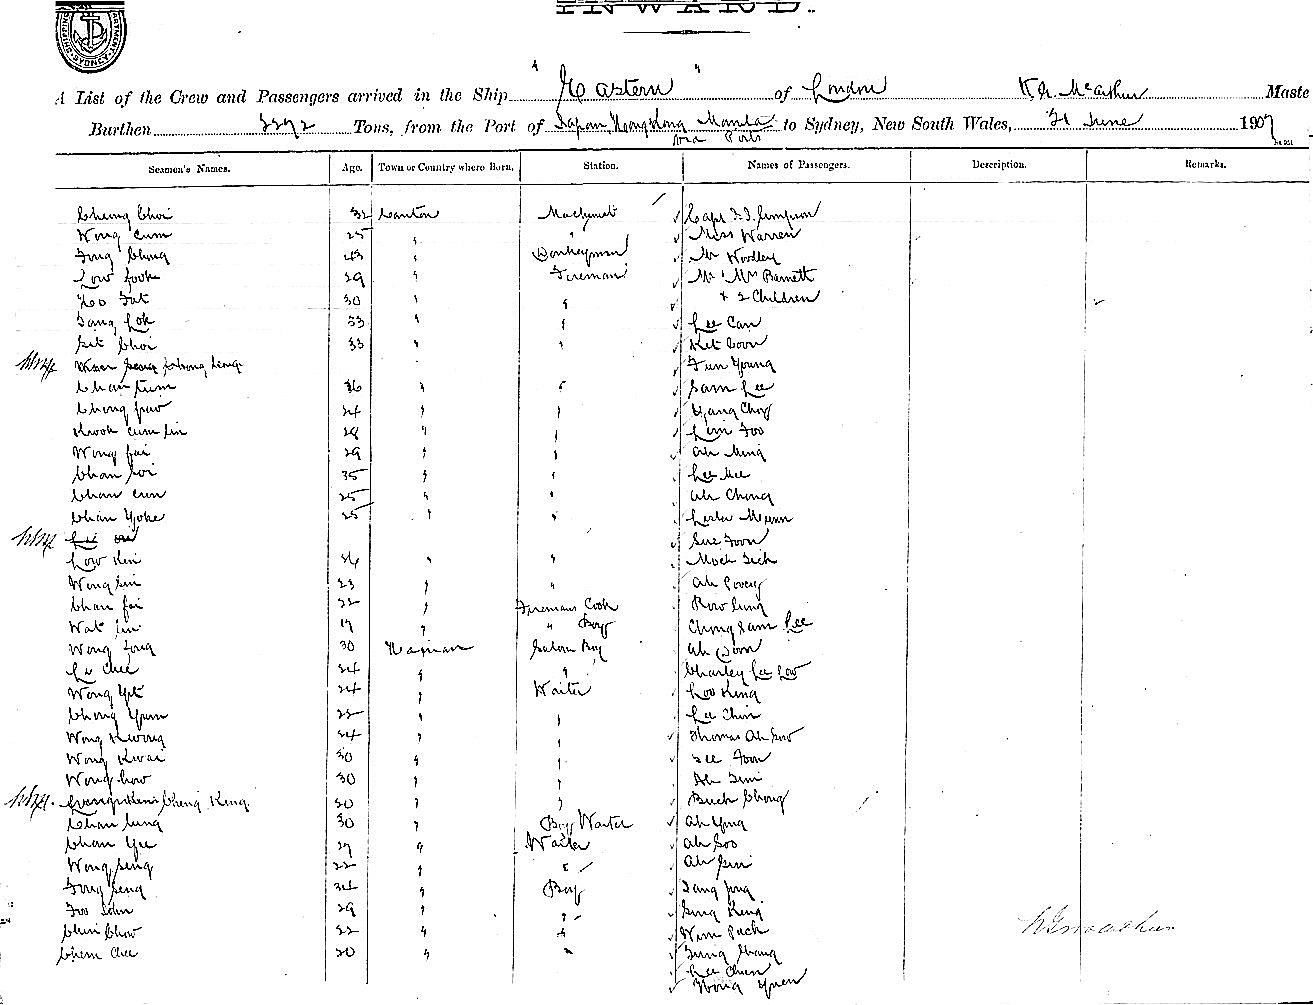 INWARD.
SHIPPING DEPARTMENT SYDNEY
A List of the Crew and Passengers arrived in the Ship "Eastern" of London K. G. McArthur Maste
Burthen 3292 Tons, from the Port of Japan, Hong Kong Manila to Sydney, New South Wales, 21 June 1907
via Ports
Seamen's Names. Age. Town or Country where Born. Station. Names of Passengers. Description. Remarks.
Cheung Choi 32 Canton Machinist Capt Simpson
Wong Cum 25 " " Miss Warren
Fong Chong 43 " Donkeyman Mr Woolley
Low Fook 29 " Fireman Mr & Mrs Barnett
Foo Fat 30 " " & 2 Children
Sang Lok 33 " " Lee Can
Choi 33 " " Ket Coon
Fun Young
Chan Tum 36 " " Sam Lee
Chong 24 " " Yang Choy
Kwok Cum Lin 29 " " Lum Foo
Wong Fai 29 " " Ah Ming
Chan Loi 35 " " Lee Mee
Chan Cun 25 " " Ah Chong
Chan Yoke 25 " " Munn
Sue Foon
Low Kin 34 " " Mock Sick
Wong Lin 23 " " Ah
Chan Fai 22 " Firemans Cook Row Lung
Wat Lin 19 " " Boy Chong Sam Lee
Wong Fong 30 Hainan Saloon Boy Ah Soon
Chee 24 " " Charley Lee Low
Wong Yet 24 " Waiter Loo King
Chong Yum 22 " " Lee Chin
Wong Kwong 24 " " Thomas Ah Sow
Wong Kwai 30 " " See Foon
Wong How 30 " " Ah Sim
Cheng King 20 " " Buck Chong
Chan Lung 30 " Boy Waiter Ah Yong
Chan Yee 27 " Waiter Ah Soo
Wong Seng 22 " " Ah Sin
Fong Seng 34 " Boy Sang Jong
Foo John 29 " " Sing King
Chin Chow 22 " " Pack
Chem Chee 20 " " Sung Shang
Lee Chun
Wong Yuen